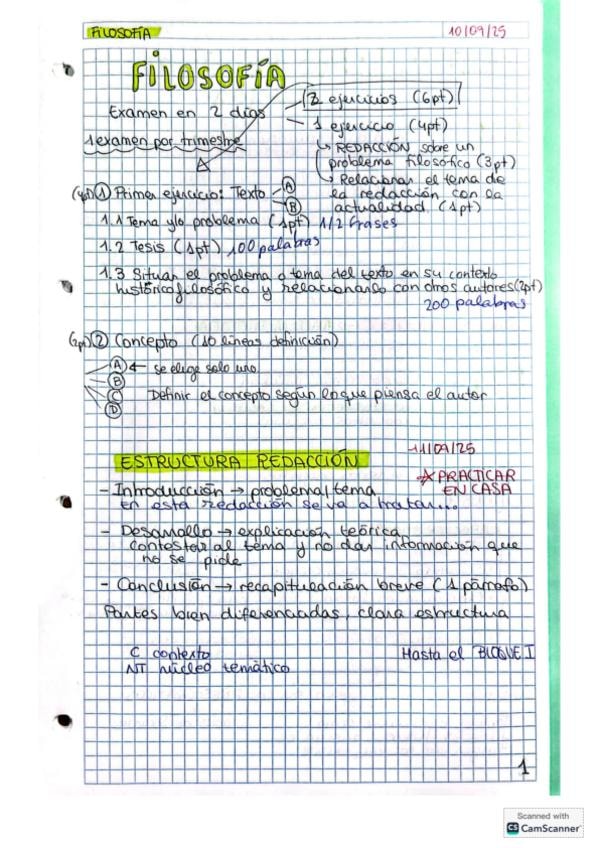 FILOSOFÍA
10/09/25
FILOSOFÍA
Examen en 2 días
1 examen por trimestre
2 ejercicios (6pt)
1 ejercicio (4pt)
REDACCIÓN sobre un
problema filosófico (3pt)
Relacionar el tema de
la redacción con la
actualidad (1pt)
(4pt) 1 Primer ejercicio: Texto A
B
1.1 Tema y/o problema (1pt) 1/2 frases
1.2 Tesis (1pt) 100 palabras
1.3 Situar el problema o tema del texto en su contexto
histórico filosófico y relacionarlo con otros autores (2pt)
200 palabras
(2pt) 2 Concepto (10 líneas definición)
A ← se elige solo uno
B
C Definir el concepto según lo que piensa el autor
D
11/09/25
ESTRUCTURA REDACCIÓN
PRACTICAR
EN CASA
- Introducción → problema/tema
en esta redacción se va a tratar...
- Desarrollo → explicación teórica,
contestar al tema y no dar información que
no se pide
- Conclusión → recapitulación breve (1 párrafo)
Partes bien diferenciadas, clara estructura
C contexto
Hasta el BLOQUE I
NT núcleo temático
1
Scanned with
CS CamScanner